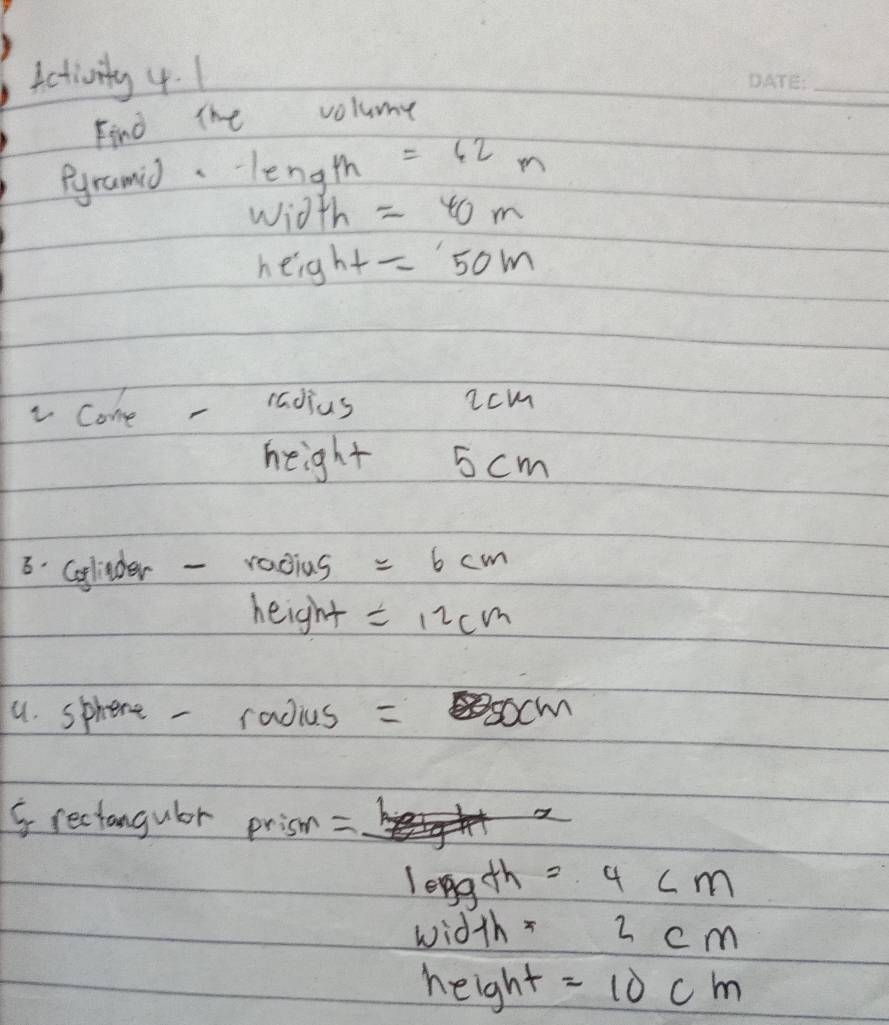 DATE:
Activity 4.1
Find the volume
Pyramid. -length = 62 m
width = 40 m
height = 50m
2. Cone - radius 2cm
height 5cm
3. Cylinder - radius = 6 cm
height = 12cm
4. sphere - radius = 50cm
5 rectangular prism =
length = 4 cm
width = 2 cm
height = 10 cm